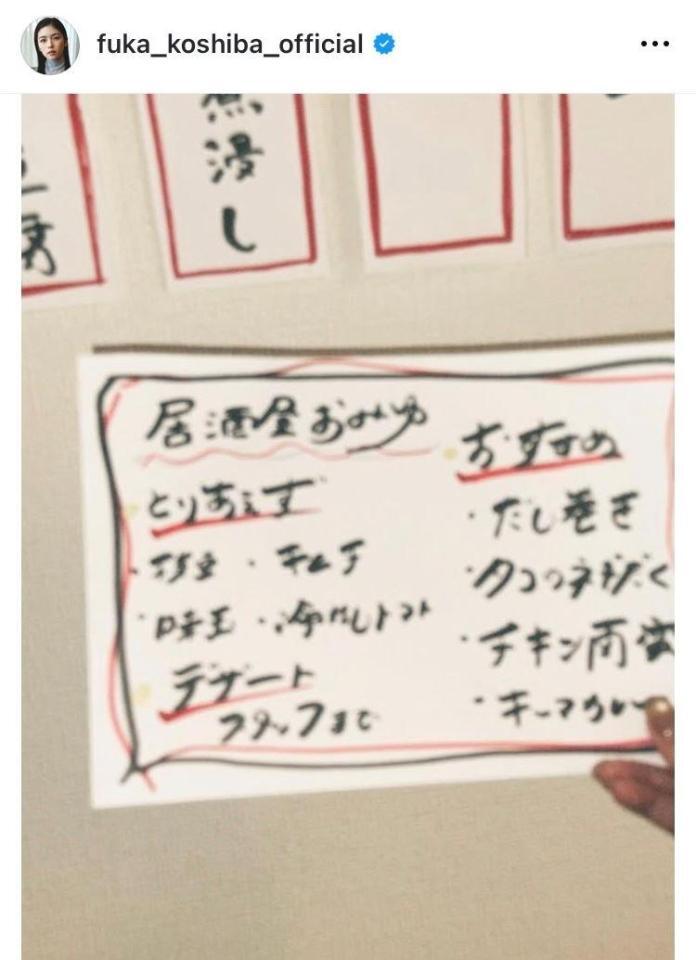 fuka_koshiba_official
浸し
居酒屋おみゆ
とりあえず
・キムチ
・味玉 ・冷やしトマト
デザート
スタッフまで
おすすめ
・だし巻き
・チキン南蛮
・キーマカレー